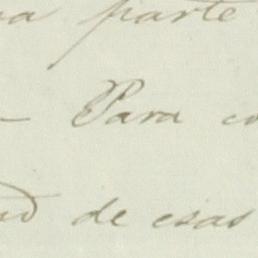 parte
— Para
de esas